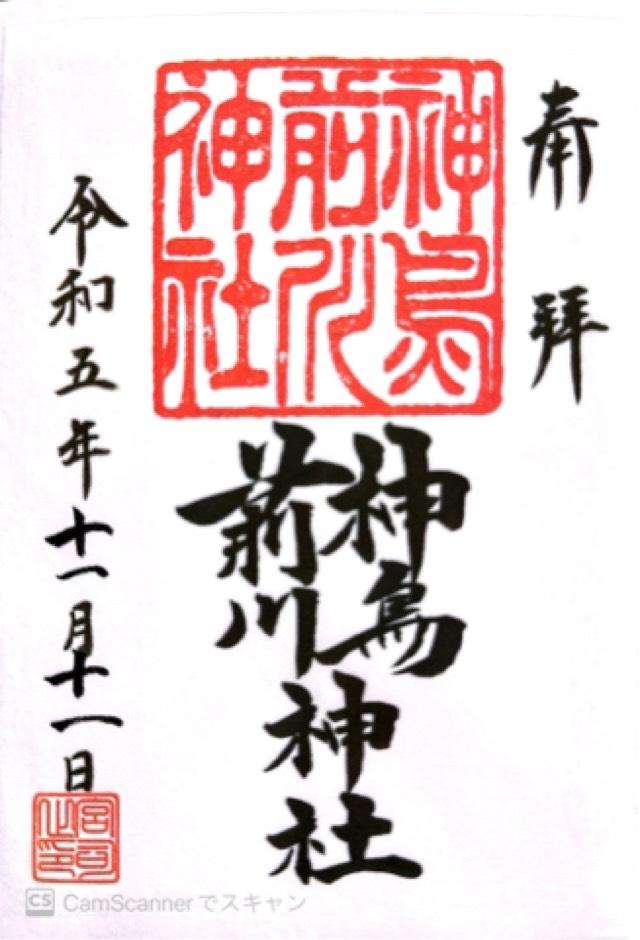 奉拝
神鳥
前川
神社
神鳥
前川
神社
令和五年十一月十一日
宮司
之印
CS CamScannerでスキャン